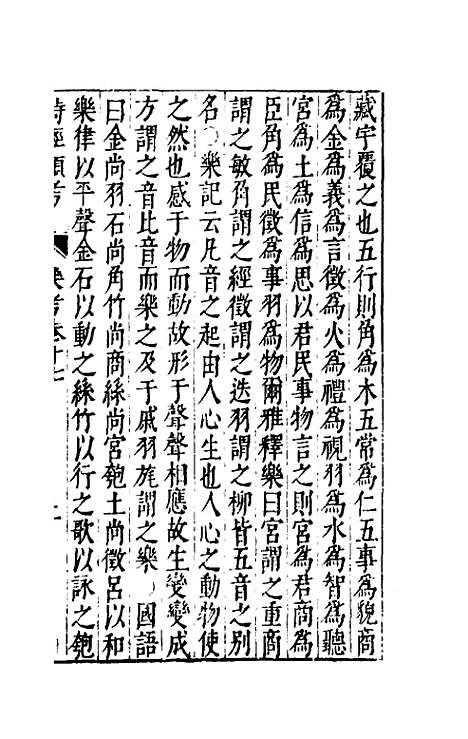 藏宇覆之也五行則角為木五常為仁五事為貌商
為金為義為言徵為火為禮為視羽為水為智為聽
宮為土為信為思以君民事物言之則宮為君商為
臣角為民徵為事羽為物爾雅釋樂曰宮謂之重商
謂之敏角謂之經徵謂之迭羽謂之柳皆五音之別
名○樂記云凡音之起由人心生也人心之動物使
之然也感于物而動故形于聲聲相應故生變變成
方謂之音比音而樂之及于戚羽旄謂之樂○國語
曰金尚羽石尚角竹尚商絲尚宮匏土尚徵呂以和
樂律以平聲金石以動之絲竹以行之歌以詠之匏
詩經類考 卷十七